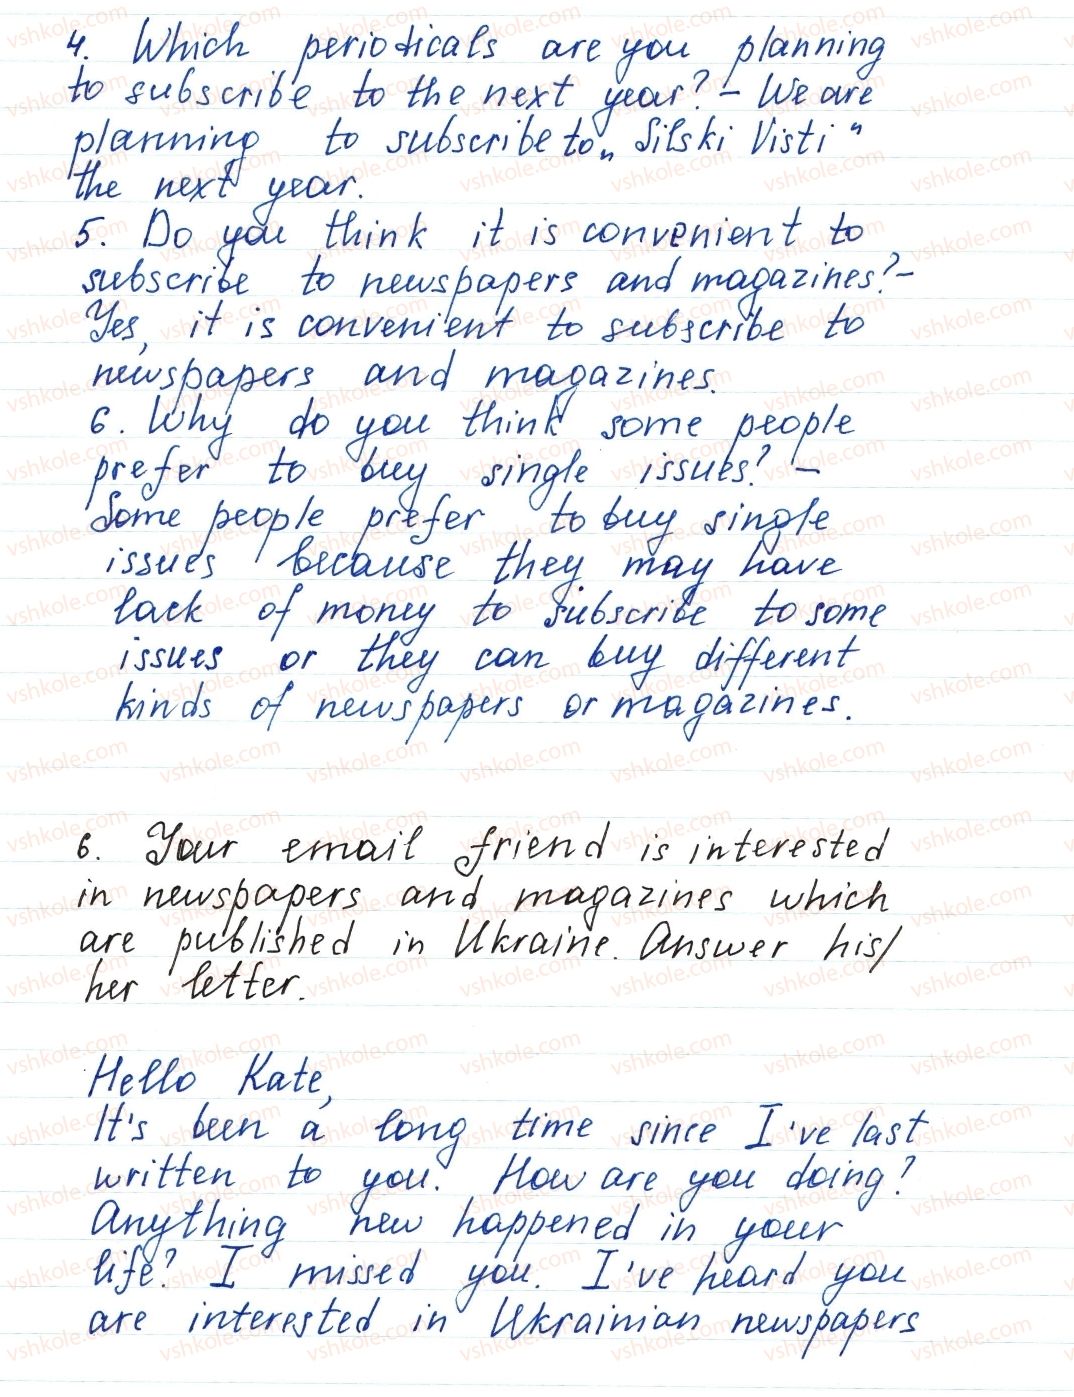 4. Which periodicals are you planning
to subscribe to the next year? – We are
planning to subscribe to „Silski Visti"
the next year.
5. Do you think it is convenient to
subscribe to newspapers and magazines? –
Yes, it is convenient to subscribe to
newspapers and magazines.
6. Why do you think some people
prefer to buy single issues? –
Some people prefer to buy single
issues because they may have
lack of money to subscribe to some
issues or they can buy different
kinds of newspapers or magazines.
6. Your email friend is interested
in newspapers and magazines which
are published in Ukraine. Answer his/
her letter.
Hello Kate,
It's been a long time since I've last
written to you. How are you doing?
Anything new happened in your
life? I missed you. I've heard you
are interested in Ukrainian newspapers